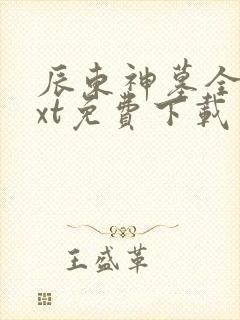 辰东神墓全
xt免費下載
王盛革